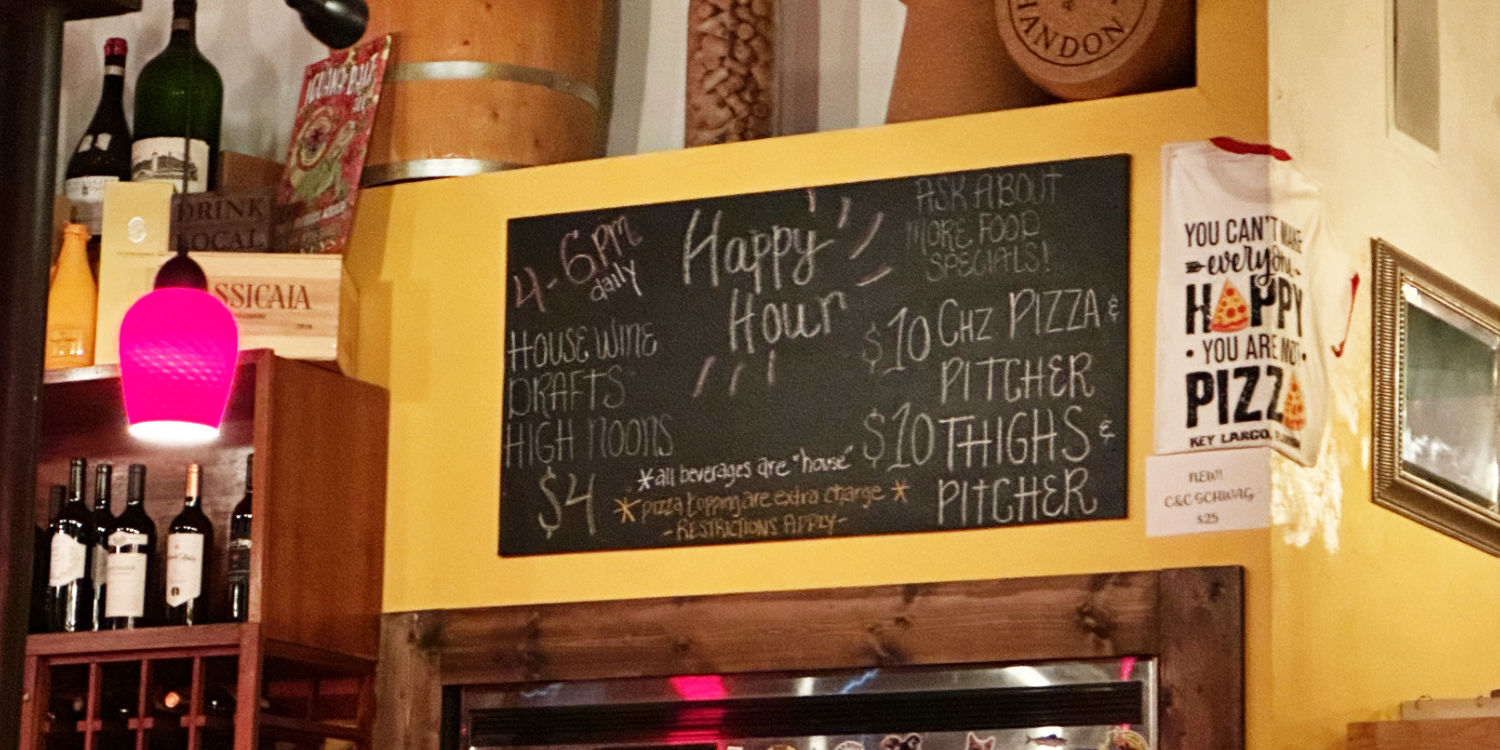 HANDON
DRINK
LOCAL
SSICAIA
4-6pm
daily
Happy
Hour
ASK ABOUT
MORE FOOD
SPECIALS!
HOUSE WINE
DRAFTS
HIGH NOONS
$4
$10 CHZ PIZZA &
PITCHER
$10 THIGHS &
PITCHER
*all beverages are "house"
*pizza topping are extra charge *
-RESTRICTIONS APPLY-
YOU CAN'T MAKE
everyone
HAPPY
• YOU ARE NOT •
PIZZA
KEY LARGO,
NEW!
C&C SCHWAG
$25